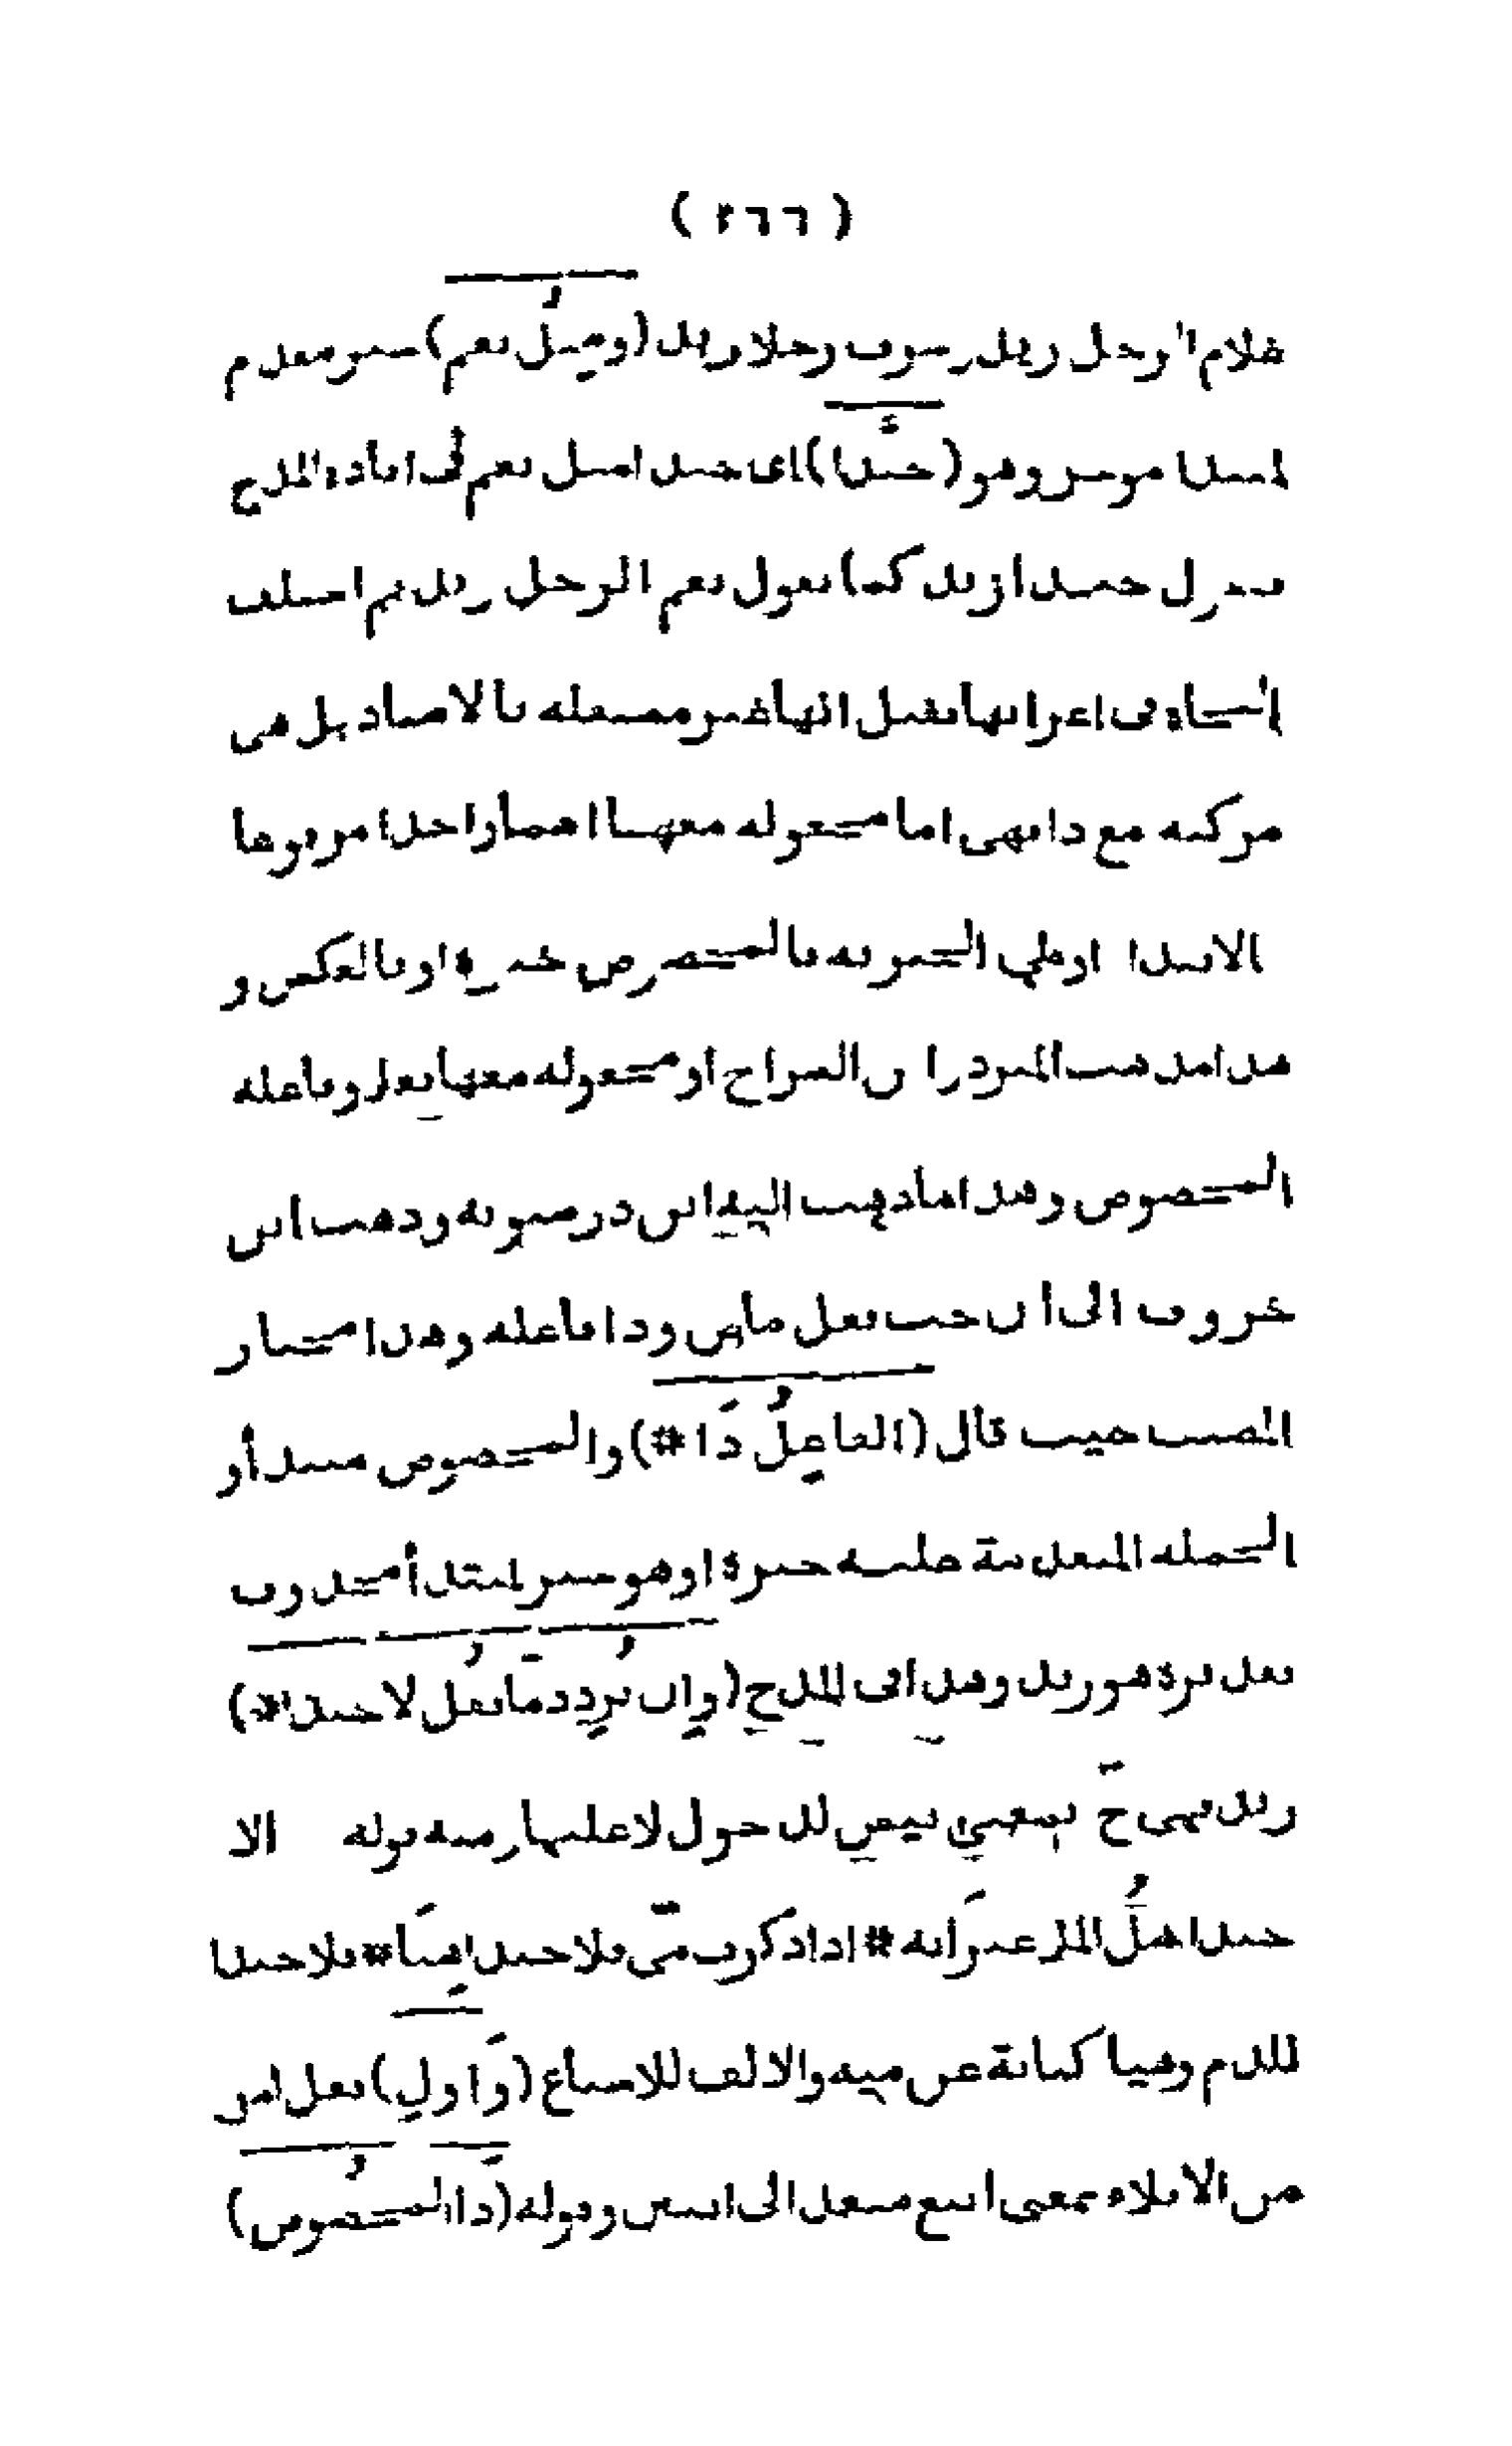 (٢٦٦)
غلام الرجل زيد وسوف رجلا زيد (ومثل نعم) خبر مقدم
لمبتدا مؤخر وهو (حبذا) اى حبذا مثل نعم فى افادة المدح
فتقول حبذا زيد كما تقول نعم الرجل زيد ثم اختلف
النحاة فى اعرابها فقيل انها غير مستقلة بالاسناد بل هى
مركبة مع ذا فهى اما مجعولة معها اسما واحدا مرفوعا
الابتدا او على الخبرية فالمخصوص خبرة او بالعكس و
هذا مذهب المبرد وا ن السراج او مجعولة معها فعل وفاعله
المخصوص وهذا ما ذهب اليه ابن درستويه وذهب ابن
خروف الى ان حب فعل ماض وذا فاعله وهذا مختار
المصنف حيث قال (الفاعلُ ذَا #) والمخصوص مبتدأ و
الجملة المتقدمة عليه خبرة او هو خبر لمبتدأ محذوف
تقديرة هو زيد وهذا فى المدح (وإن تُرِد ذمًّا فقُل لا حبذا #)
زيد فهى ح بمعنى بيس لدخول لا عليها ومنه قوله الا
حبذا اهلُ الملا غيرَ انه # اذا ذكرت مىّ فلا حبذا هيَا # فلا حبذا
للذم وهيا كناية عن ميه والالف للاشباع (وَاولِ) فعل امر
من الايلاء بمعنى اتبع متعد الى اثنين وقوله (ذا المخصوص)